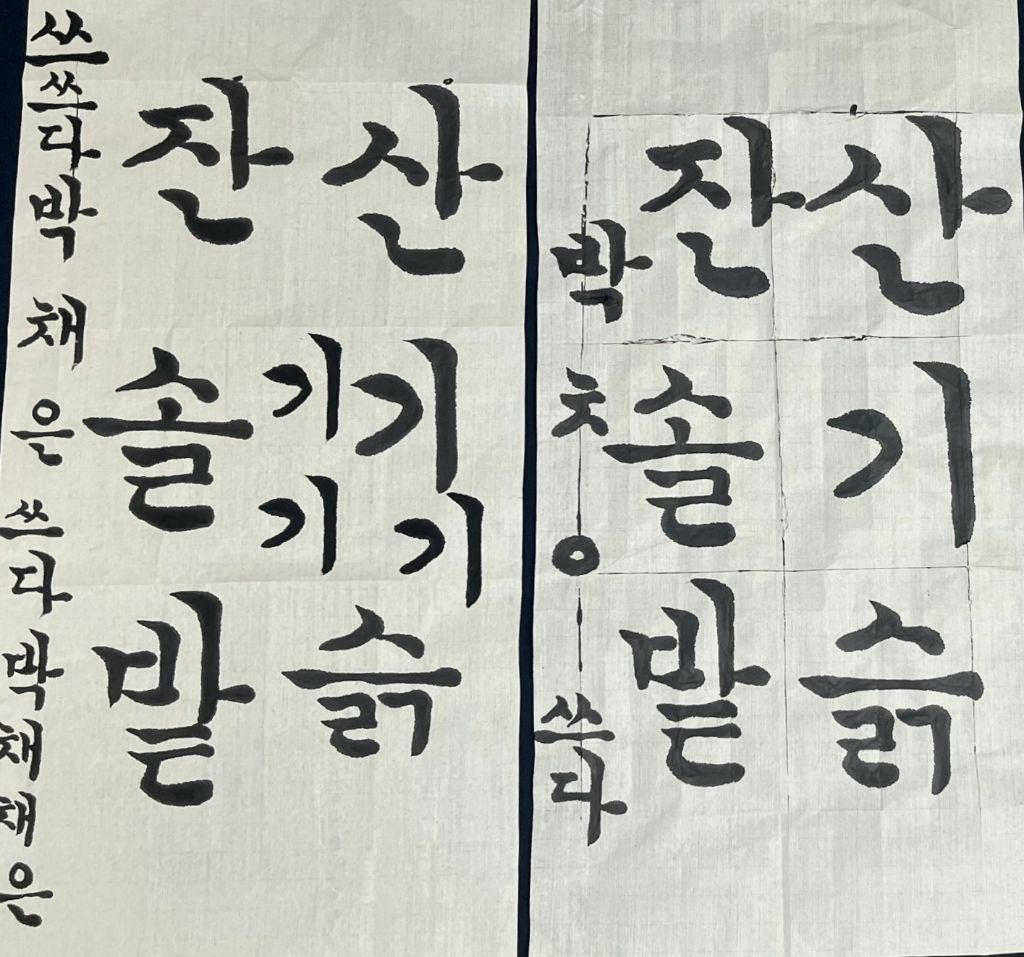 산기기슭
기기
잔솔밭
쓰쓰다박채은쓰다박채채은
산기슭
잔솔밭
박ㅊㅇ쓰다